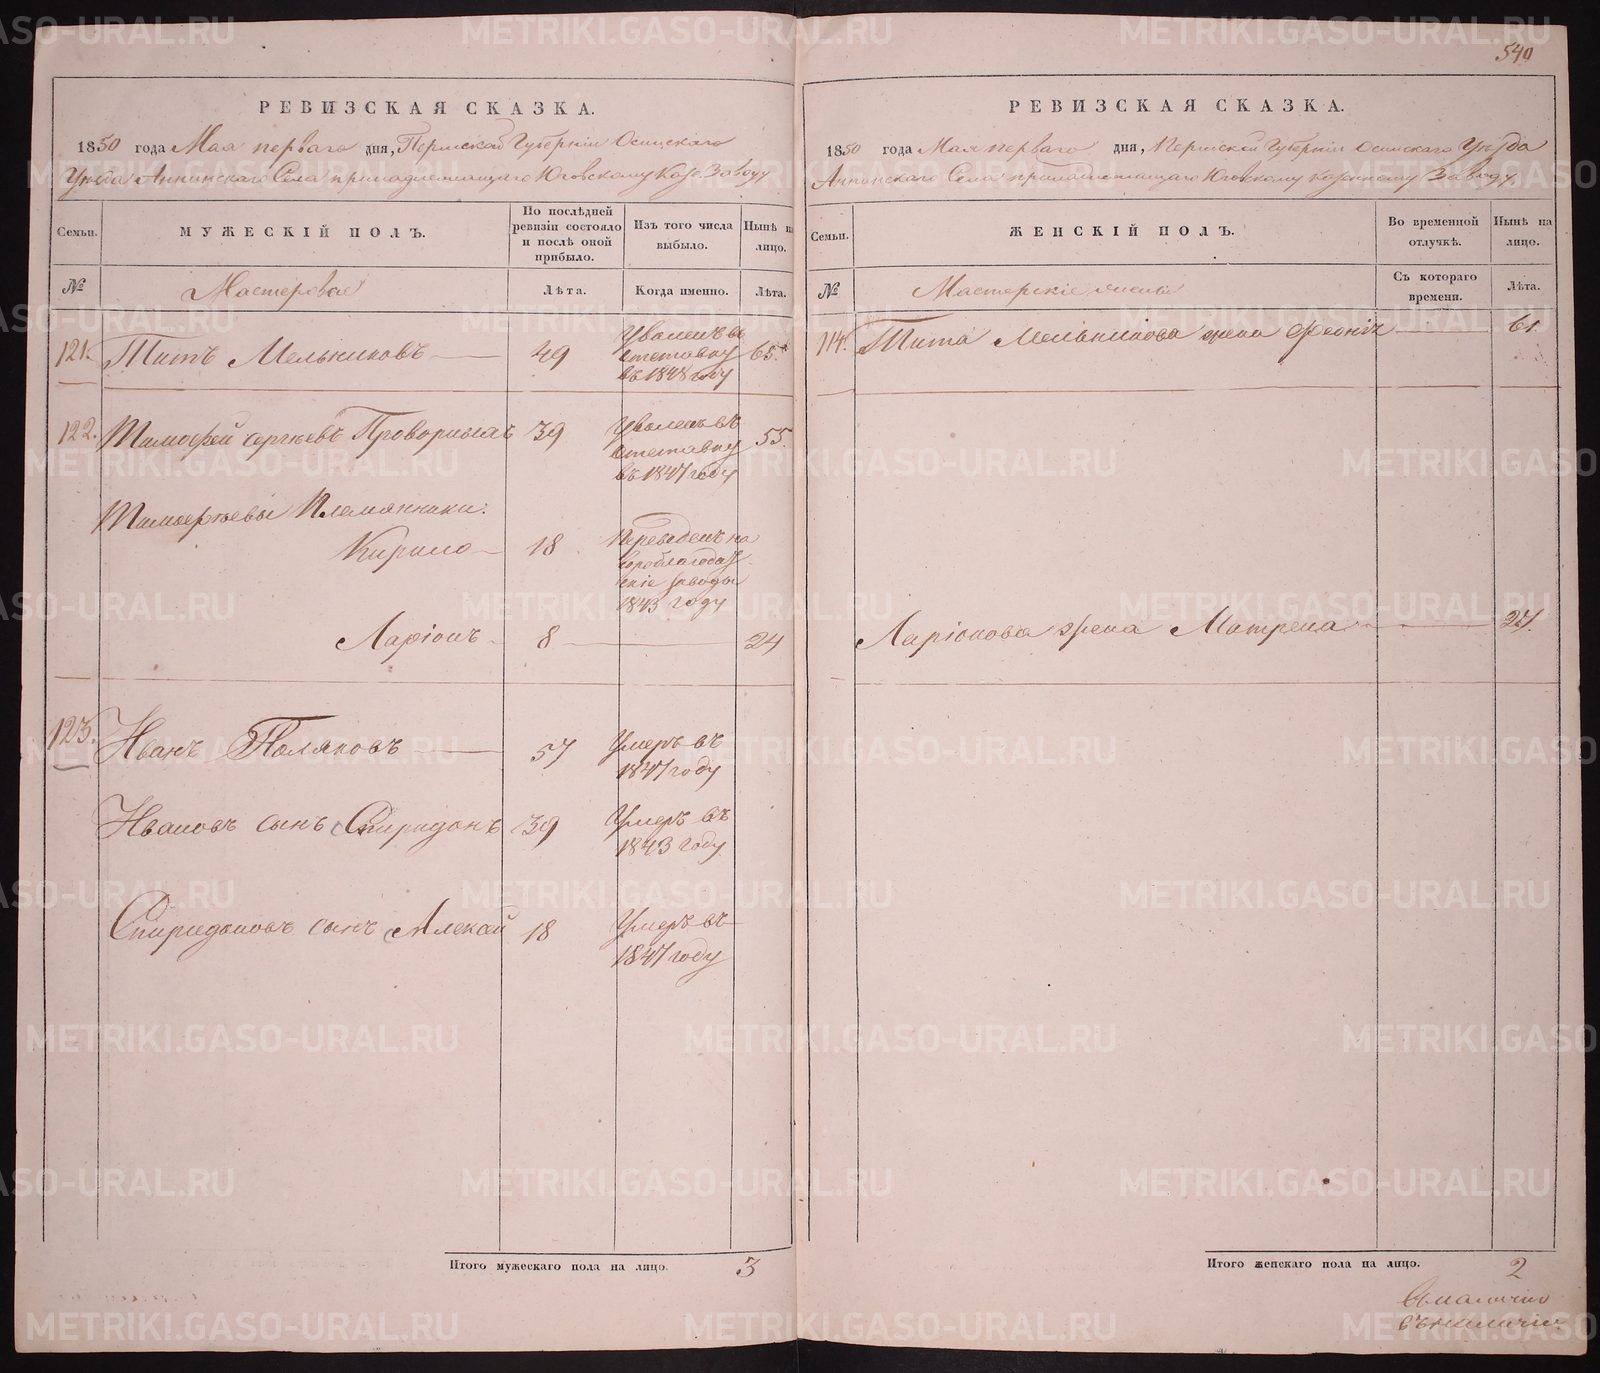 540
РЕВИЗСКАЯ СКАЗКА.
1850 года Мая перваго дня, Пермской Губернiи Осинскаго
Уѣзда Аннинскаго Села принадлежащаго Юговскому Каз. Заводу
Семьи.
МУЖЕСКІЙ ПОЛЪ.
По послѣдней
ревизіи состояло
и послѣ оной
прибыло.
Изъ того числа
выбыло.
Нынѣ на
лицо.
№
Мастеровые
Лѣта.
Когда именно.
Лѣта.
121. Титъ Мельниковъ 49 Уволенъ въ
отставку 65
въ 1848 году
122. Тимофей Сергѣевъ Проворныхъ 39 Уволенъ въ
отставку 55.
въ 1847 году
Тимофеевы Племянники:
Кирило 18 Переведенъ на
Гороблагодат
скіе заводы
1843 году
Ларіонъ 8 24
123. Иванъ Поляковъ 57 Умеръ въ
1847 году
Ивановъ сынъ Спиридонъ 39 Умеръ въ
1843 году
Спиридоновъ сынъ Алексѣй 18 Умеръ въ
1847 году
Итого мужескаго пола на лицо. 3
РЕВИЗСКАЯ СКАЗКА.
1850 года Мая перваго дня, Пермской Губернiи Осинскаго Уѣзда
Аннинскаго Села принадлежащаго Юговскому казенному Заводу
Семьи.
ЖЕНСКІЙ ПОЛЪ.
Во временной
отлучкѣ.
Нынѣ на
лицо.
№
Мастерскіе
Съ котораго
времени.
Лѣта.
114. Тита Мельникова жена 61
Ларіонова жена Матрена 27.
Итого женскаго пола на лицо. 2
METRIKI.GASO-URAL.RU